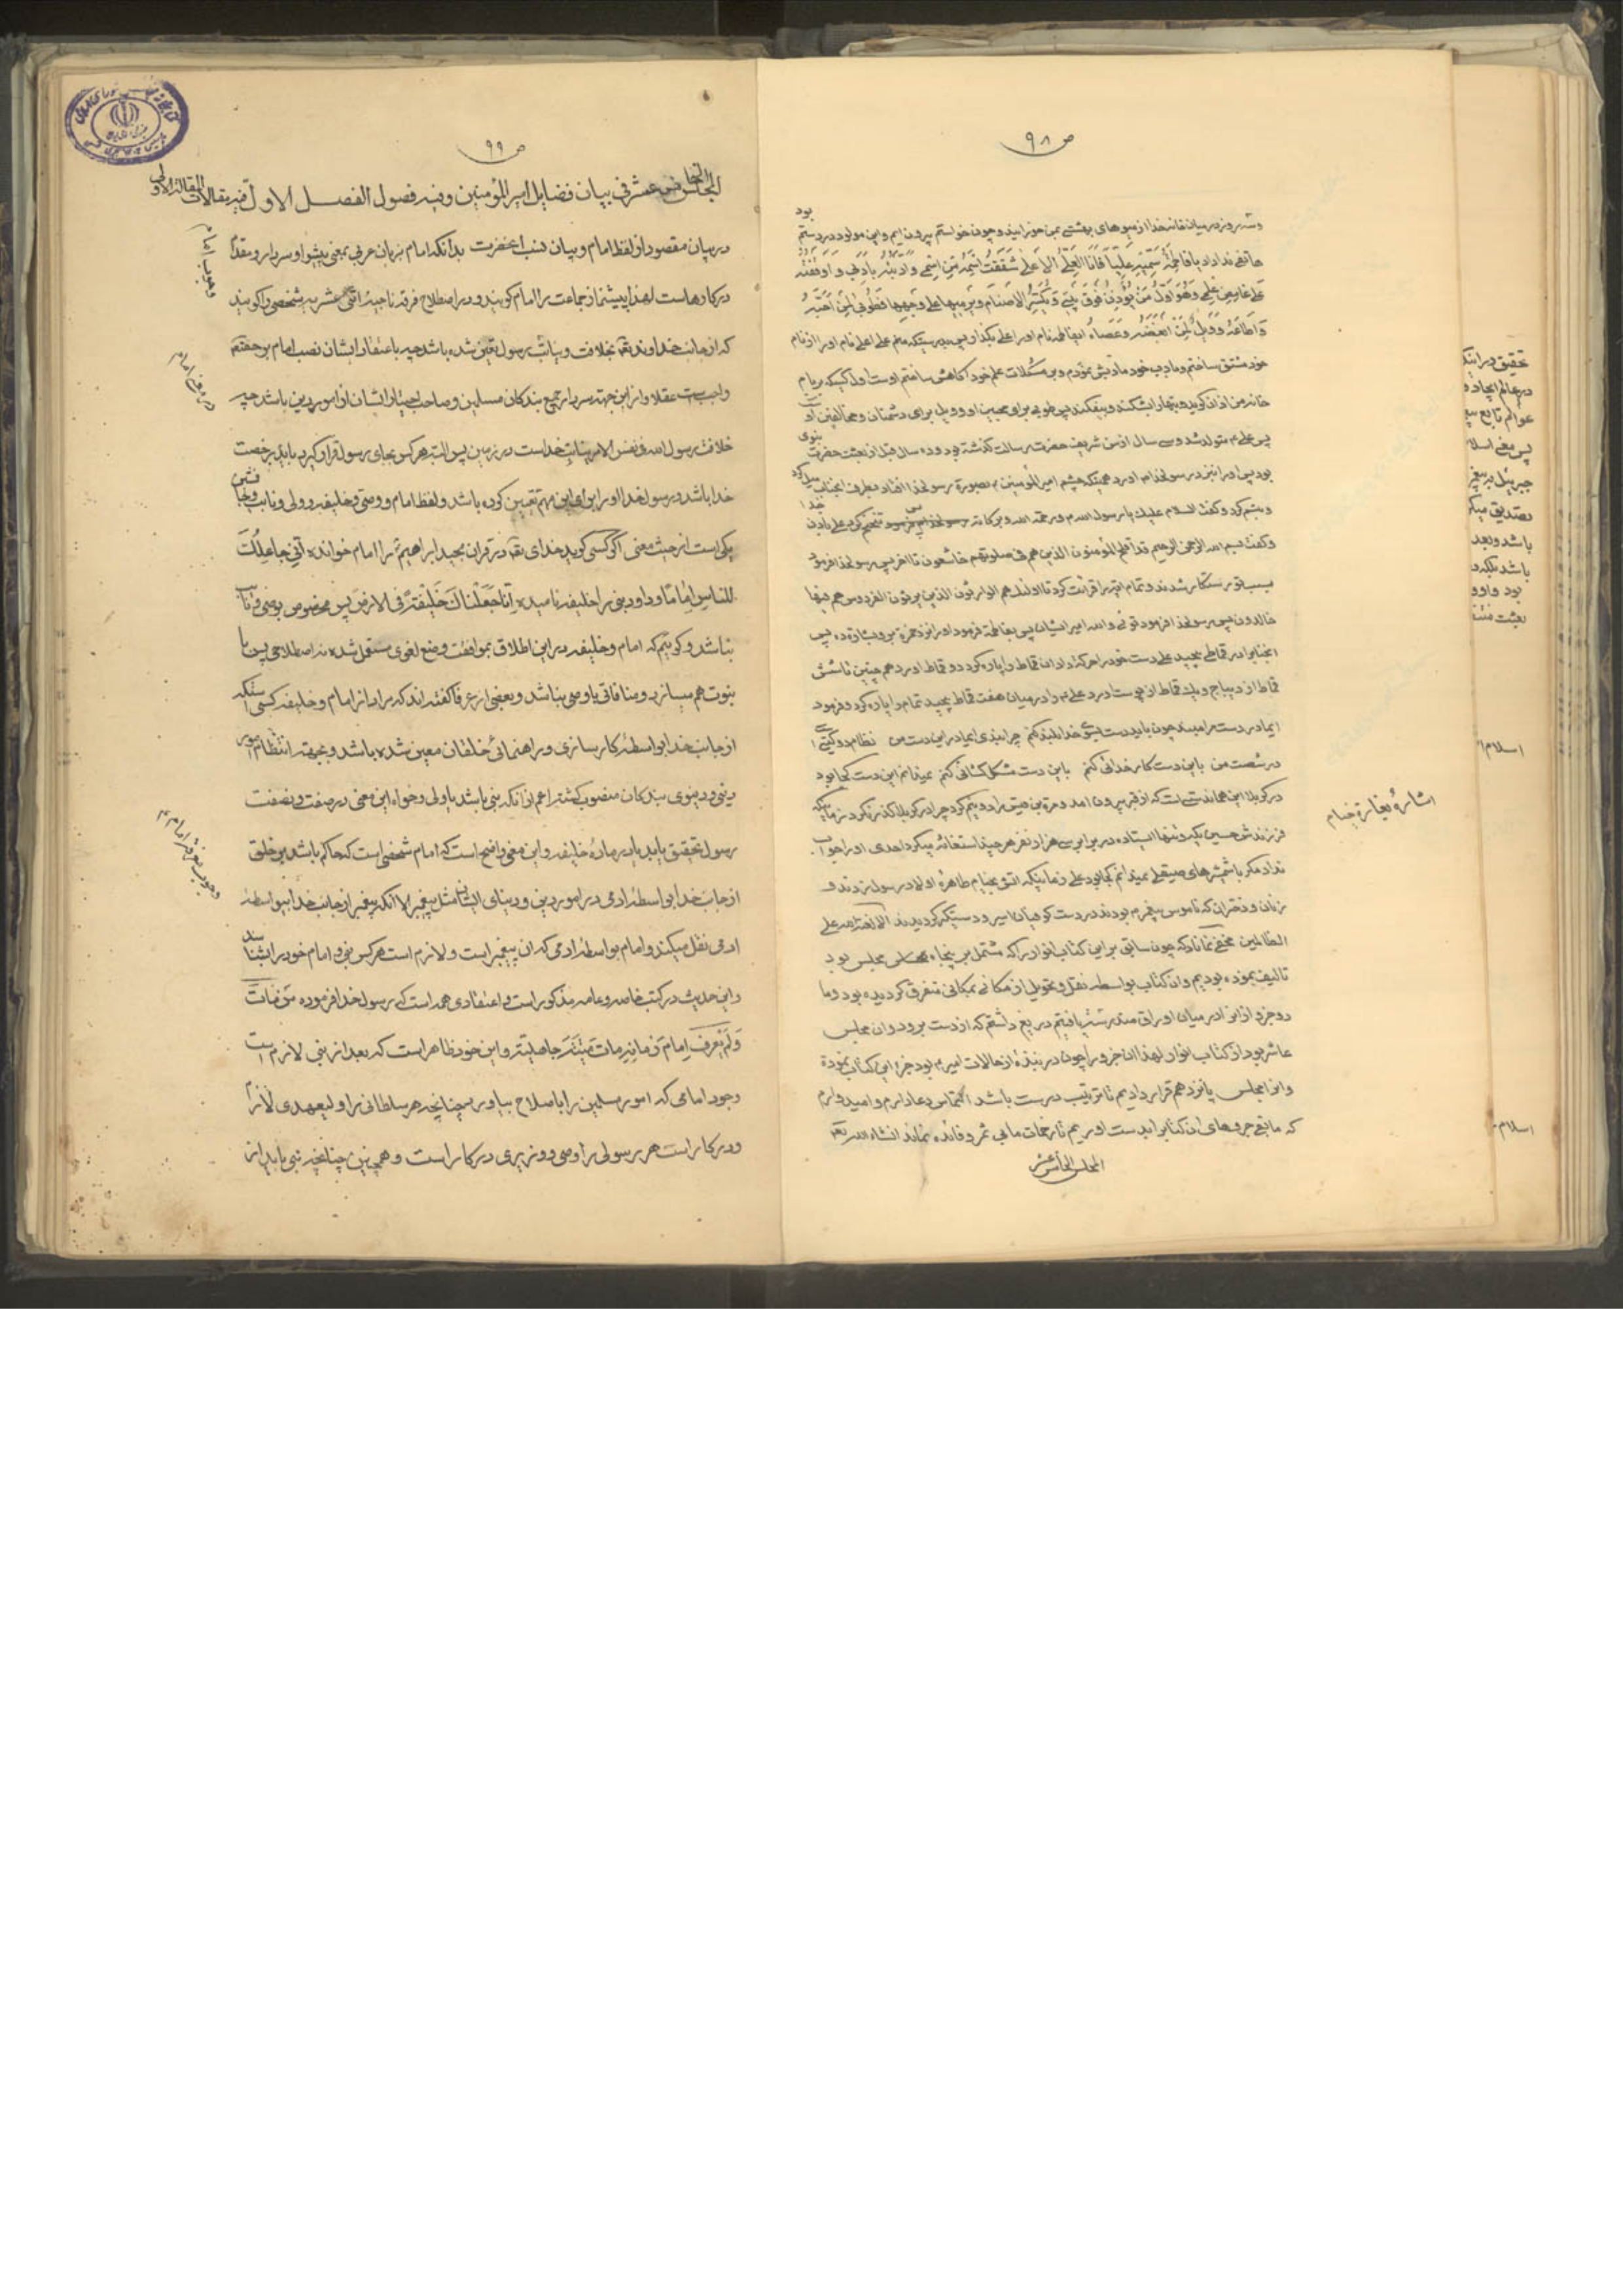 ص ۹۸
وسه روز در میان خانه خدا از میوهای بهشتی بمن خورانیدند و چون خواستم بیرون ایم واین مولود در دستم بود
هاتفی ندا داد یا فاطمة سمیه علیا فانا العلی الاعلی شققت اسمه من اسمی وادبته بادبی واوقفته
علی غامض علمی وهو اول من یؤذن فوق بیتی ویکسر الاصنام ویرمیها علی وجهها فطوبی لمن احبه
واطاعه وویل لمن ابغضه وعصاه ایفاطمه نام اورا علی بگذار پس بدرستیکه منم علی اعلی نام اورا از نام
خود مشتق ساختم وبادب خود مادبش نمودم وبر مشکلات علم خود اکاهش ساختم اوست اول کسیکه بربام
خانه من اذان کوید وبتهارا بشکند وبیفکند پس طوبی برای محبین او وویل برای دشمنان ومخالفین او
پس علی م متولد شد وسی سال از سن شریف حضرت رسالت کذشته بود وده سال قبل از بعثت حضرت نبوی
بود پس اورا نزد رسولخدا م اورد همینکه چشم امیرالمؤمنین م بصورة رسولخدا افتاد بطرف انجناب میل کرد
وتبسم کرد وکفت السلام علیك یا رسول الله م ورحمة الله وبرکاته
وکفت بسم الله الرحمن الرحیم قد افلح المؤمنون الذین هم فی صلوتهم خاشعون تا اخر پس رسولخدا فرمود
بسبب تو رستکار شدند وتمام ایه را قرائت کرد تا اولئك هم الوارثون الذین یرثون الفردوس هم فیها
خالدون پس رسولخدا فرمود توئی والله امیر ایشان پس بفاطمه فرمود اورا نزد حمزة برو بشارة ده پس
انجنابرا در قماطی پیچید علی دست خود را حرکة داد ان قماط را پاره کرد دو قماط اورد همچنین تا شش
قماط از دیباج ویك قماط از پوست اورد علی م را در میان هفت قماط پیچید تمام را پاره کرد وفرمود
ایمادر دست مرا مبند چون باید دست پیش خدا بلند کنم چرا بندی ایمادر این دست من نظام دو کیتی
در شصت من باین دست کار خدائی کنم باین دست مشکل کشائی کنم نمیدانم این دست کجا بود
در کربلا این همان دستی است که از قبر بیرون امد ومرة بن قیس را دو نیم کرد چرا در کربلا کذر نکرد زمانیکه
فرزندش حسین یکه وتنها ایستاده در برابر سی هزار نفر هر چند استغاثه میکرد احدی اورا جواب
نداد مکر باشمشیرهای صیقلی نمیدانم کجا بود علی زمانیکه اتش بخیام طاهرۀ اولاد رسول زدند و
زنان ودختران که ناموس پیغمبر م بودند در دست کوفیان اسیر ودستکیر کردیدند الا لعنة الله علی
الظالمین مخفی نماناد که چون سابق بر این کتاب انوار را که مشتمل بر پنجاه مجلس بود
تالیف نموده بودیم وان کتاب بواسطه نقل وتحویل از مکانی بمکانی متفرق کردیده بود وما
دو جزو از انرا در میان اوراق مندرسه یافتیم دریغ داشتم که از دست برود وان مجلس
عاشر بود از کتاب انوار لهذا ان جزو را چون در نبذۀ از حالات امیر م بود جزء این کتاب نموده
وانرا مجلس پانزدهم قرار دادیم تا ترتیب درست باشد التماس دعا دارم وامیدوارم
که مابقی جزوهای ان کتابرا بدست اوریم تا زحمات ما بی ثمر وفائده نماند انشاء الله تع
المجلس الخامس عشر
اشارۀ بغارة خیام
تحقیق در اینکه
در عالم ایجاد و
عوالم تابع
پس معنی اسلا
جبرئیل بر پیغ
تصدیق میک
باشد وبعد
باشد بلکه د
بود واوو
بعثت
اسلام
اسلام
ص ۹۹
المجلس الخامس عشر فی بیان فضایل امیر المؤمنین وفیه فصول الفصل الاول فیه مقالات المقالة الاولی
در بیان مقصود از لفظ امام وبیان نسب انحضرت بدانکه امام بزبان عربی بمعنی پیشوا وسردار ومقتدا
در کارهاست لهذا پیشنماز جماعت را امام کویند ودر اصطلاح فرقه ناجیه اثنی عشریه شخصی را کویند
که از جانب خداوند تع بخلافت ونیابت رسول تعیین شده باشد چه باعتقاد ایشان نصب امام بر حقتع
واجبست عقلا واز این جهة سردار جمیع بندکان مسلمین وصاحب اختیار ایشان از امور دین باشد چه
خلافت رسول الله فی نفس الامر نیابت خداست در زمین پس البته هر کس بجای رسول قرار کیرد باید برخصت
خدا باشد ورسول خدا اورا برای این مهم تعیین کرده باشد ولفظ امام ووصی وخلیفه وولی ونایب وجانشین
یکی است از حیث معنی اکر کسی کوید خدای تع در قران مجید ابراهیم را امام خوانده انی جاعلك
للناس اماما وداود نبی را خلیفه نامیده انا جعلناك خلیفة فی الارض پس مخصوص بوصی ونایب
نباشد وکوئیم که امام وخلیفه در این اطلاق بموافقت وضع لغوی مستعمل شده نه اصطلاحی پس با
نبوت هم میسازد ومنافاتی با وصی نباشد وبعضی از عرفا کفته اند که مراد از امام وخلیفه کسی استکه
از جانب خدا بواسطۀ کارسازی وراهنمائی خلقان معین شده باشد وبجهة انتظام امور
دینی ودنیوی بندکان منصوب کشته اعم از آنکه نبی باشد یا ولی وخواه این معنی در صفت ونصفت
رسول تحقیق یابد یا در مادۀ خلیفه واین معنی واضح است که امام شخصی است که حاکم باشد بر خلق
از جانب خدا بواسطۀ ادمی در امور دین ودنیای ایشان مثل پیغمبر الا آنکه پیغمبر از جانب خدا بیواسطۀ
ادمی نقل میکند وامام بواسطۀ ادمی که ان پیغمبر است ولازم است هر کس نبی وامام خود را بشناسد
واین حدیث در کتب خاصه وعامه مذکور است واعتقادی همه است که رسول خدا فرموده من مات
ولم یعرف امام زمانه مات میتة جاهلیة واین خود ظاهر است که بعد از نبی لازم است
وجود امامی که امور مسلمین را باصلاح بیاورد چنانچه هر سلطانی را ولیعهدی لازم
ودر کار است هر رسولی را وصی ووزیری در کار است وهمچنین چنانچه نبی باید از
وجوب امام
در معنی امام
وجوب معرفة امام م